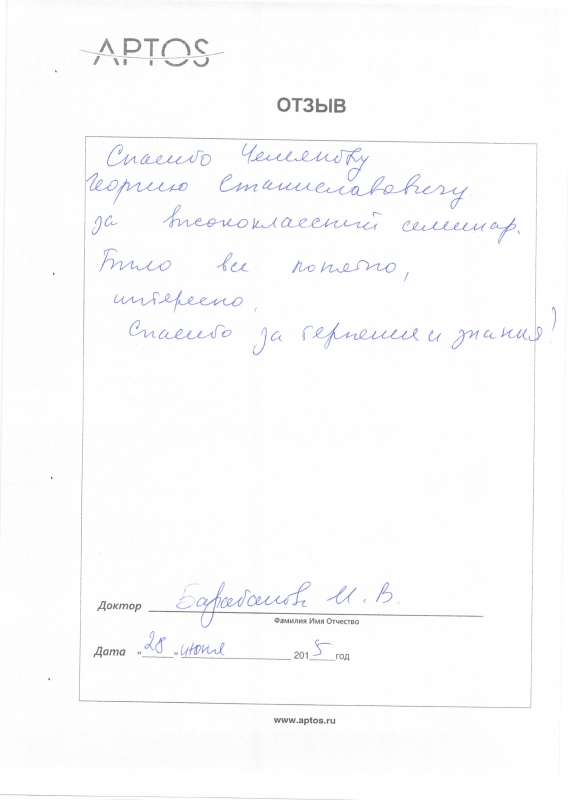 APTOS
ОТЗЫВ
Спасибо Чемянову
Георгию Станиславовичу
за висококлассний семинар.
Било все понятно,
интересно.
Спасибо за терпение и знания!
Доктор Барабанов И. В.
Фамилия Имя Отчество
Дата «28» июня 2015 год
www.aptos.ru